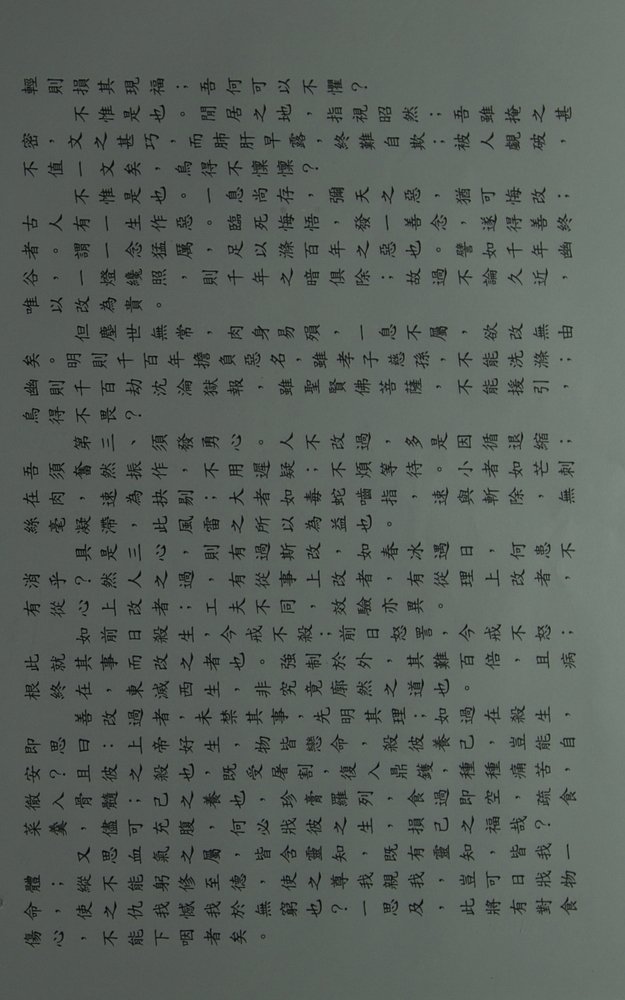 輕則損其現福；吾何可以不懼？
不惟是也。閒居之地，指視昭然；吾雖掩之甚
密，文之甚巧，而肺肝早露，終難自欺；被人覷破，
不值一文矣，烏得不懍懍？
不惟是也。一息尚存，彌天之惡，猶可悔改；
古人有一生作惡。臨死悔悟，發一善念，遂得善終
者。謂一念猛厲，足以滌百年之惡也。譬如千年幽
谷，一燈纔照，則千年之暗俱除；故過不論久近，
唯以改為貴。
但塵世無常，肉身易殞，一息不屬，欲改無由
矣。明則千百年擔負惡名，雖孝子慈孫，不能洗滌；
幽則千百劫沈淪獄報，雖聖賢佛菩薩，不能援引，
烏得不畏？
第三、須發勇心。人不改過，多是因循退縮；
吾須奮然振作，不用遲疑；不煩等待。小者如芒刺
在肉，速為抉剔；大者如毒蛇嚙指，速與斬除，無
絲毫凝滯，此風雷之所以為益也。
具是三心，則有過斯改，如春冰遇日，何患不
消乎？然人之過，有從事上改者，有從理上改者，
有從心上改者；工夫不同，效驗亦異。
如前日殺生，今戒不殺；前日怒詈，今戒不怒；
此就其事而改之者也。強制於外，其難百倍，且病
根終在，東滅西生，非究竟廓然之道也。
善改過者，未禁其事，先明其理；如過在殺生，
即思曰：上帝好生，物皆戀命，殺彼養己，豈能自
安？且彼之殺也，既受屠割，復入鼎鑊，種種痛苦，
徹入骨髓；己之養也，珍膏羅列，食過即空，疏食
菜羹，儘可充腹，何必戕彼之生，損己之福哉？
又思血氣之屬，皆含靈知，既有靈知，皆我一
體；縱不能躬修至德，使之尊我親我，豈可日戕物
命，使之仇我憾我於無窮也？一思及此，將有對食
傷心，不能下咽者矣。